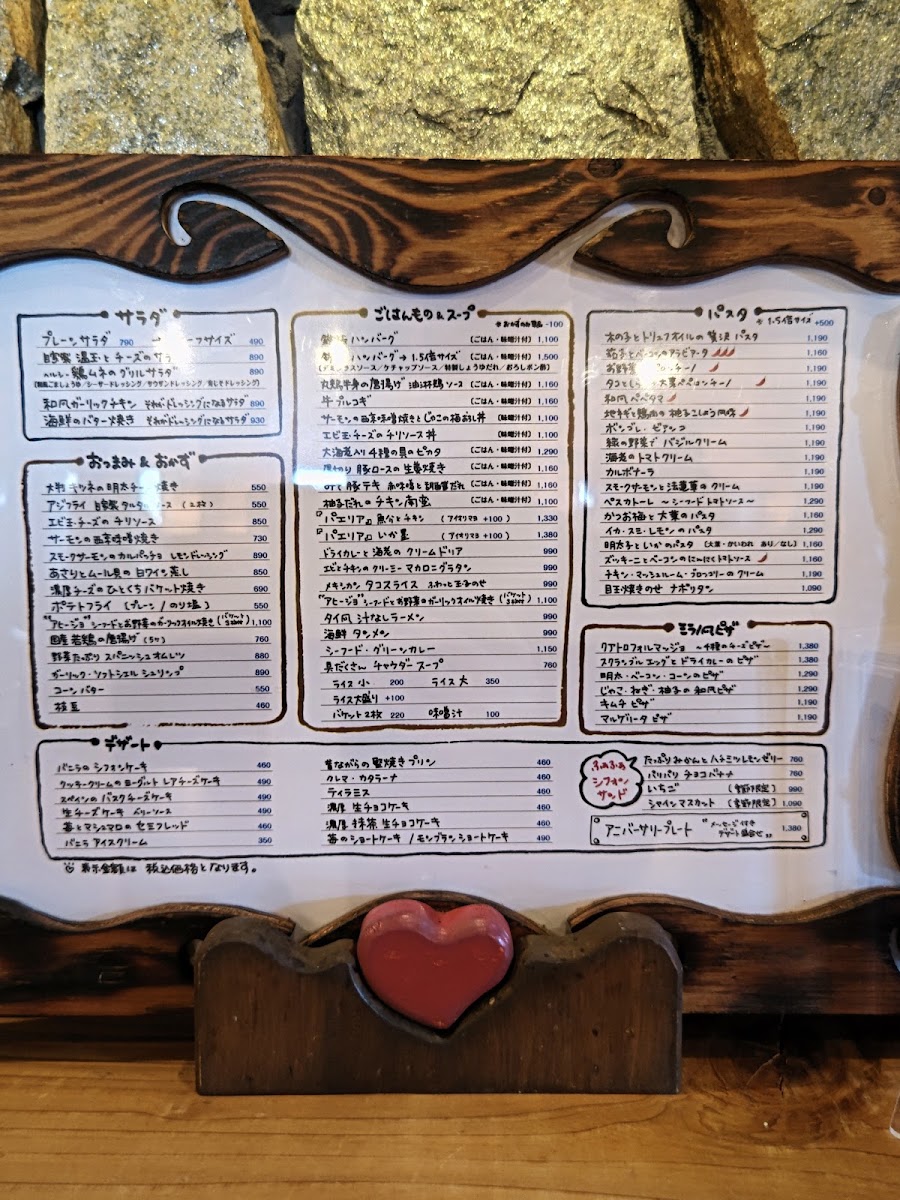 サラダ
プレーンサラダ 790 → ーフサイズ 490
自家製 温玉とチーズのサラ 890
ヘルシー 鶏ムネのグリルサラダ 890
(和風ごましょうゆ／シーザードレッシング／サウザンドレッシング／青じそドレッシング)
和風ガーリックチキン それがドレッシングになるサラダ 890
海鮮のバター焼き それがドレッシングになるサラダ 930
おつまみ & おかず
大判 キツネの明太チー 焼き 550
アジフライ 自家製 タルタルソース (2枚) 550
エビ玉・チーズの チリソース 850
サーモンの西京味噌焼き 730
スモークサーモンのカルパッチョ レモンドレッシング 890
あさりとムール貝の 白ワイン蒸し 850
濃厚チーズのひとくちバケット焼き 690
ポテトフライ (プレーン / のり塩) 550
"アヒージョ" シーフードとお野菜のガーリックオイル焼き (バケット 2枚付) 1,100
国産 若鶏の唐揚げ (5ケ) 760
野菜たっぷり スパニッシュオムレツ 880
ガーリック・ソフトシェル シュリンプ 890
コーンバター 550
枝豆 460
ごはんもの & スープ
＊おかずのみ 単品 -100
ハンバーグ (ごはん・味噌汁付) 1,100
ハンバーグ → 1.5倍サイズ (ごはん・味噌汁付) 1,500
(デミグラスソース／ケチャップソース／特製しょうゆだれ／おろしポン酢)
丸鶏半身の唐揚げ 油淋鶏ソース (ごはん・味噌汁付) 1,160
牛プルコギ (ごはん・味噌汁付) 1,160
サーモンの西京味噌焼きとじゃこの梅おろし丼 (味噌汁付) 1,100
エビ玉・チーズのチリソース丼 (味噌汁付) 1,100
大海老入り 4種の貝のピカタ (ごはん・味噌汁付) 1,290
切り 豚ロースの生姜焼き (ごはん・味噌汁付) 1,160
豚テキ 赤味噌と胡麻だれ (ごはん・味噌汁付) 1,160
柚子だれの チキン南蛮 (ごはん・味噌汁付) 1,100
『パエリア』 魚介とチキン (アイオリマヨ +100) 1,330
『パエリア』 いか墨 (アイオリマヨ +100) 1,380
ドライカレーと 海老の クリームドリア 990
エビとチキンの クリーミー マカロニグラタン 990
メキシカン タコスライス ふわっと玉子のせ 990
"アヒージョ" シーフードとお野菜のガーリックオイル焼き (バケット 2枚付) 1,100
タイ風 汁なしラーメン 990
海鮮 タンメン 990
シーフード・グリーンカレー 1,150
具だくさん チャウダースープ 760
ライス小 200 ライス 大 350
ライス大盛り +100
バケット2枚 220 味噌汁 100
パスタ
＊1.5倍サイズ +500
木の子とトリュフオイルの 贅沢 パスタ 1,190
茄子とベーコンのアラビアータ 1,190
お野菜 ペペロンチーノ 1,190
タコとしらすと大葉ペペロンチーノ 1,190
和風 ペペタマ 1,190
地キギと鶏肉の 柚子こしょう風味 1,190
ボンゴレ・ビアンコ 1,190
緑の野菜で バジルクリーム 1,190
海老の トマトクリーム 1,190
カルボナーラ 1,190
スモークサーモンと法蓮草の クリーム 1,190
ペスカトーレ ～シーフード トマトソース～ 1,290
かつお梅と 大葉の パスタ 1,190
イカ・スミ・レモンのパスタ 1,290
明太子といかのパスタ (大葉・かいわれ あり／なし) 1,160
ズッキーニとベーコンのにんにくトマトソース 1,160
チキン・マッシュルーム・ブロッコリーのクリーム 1,190
目玉焼きのせ ナポリタン 1,090
ミラノ風ピザ
クアトロフォルマッジョ ～4種のチーズピザ～ 1,380
スクランブルエッグとドライカレーのピザ 1,380
明太・ベーコン・コーンのピザ 1,290
じゃこ・ねぎ・柚子の和風ピザ 1,290
キムチ ピザ 1,190
マルゲリータ ピザ 1,190
デザート
バニラの シフォンケーキ 460
クッキークリームのヨーグルト レアチーズケーキ 490
スペインの バスクチーズケーキ 490
生チーズケーキ ベリーソース 490
苺とマシュマロの セミフレッド 460
バニラ アイスクリーム 350
昔ながらの 堅焼きプリン 460
クレマ・カタラーナ 460
ティラミス 460
濃厚 生チョコケーキ 460
濃厚 抹茶 生チョコケーキ 460
苺のショートケーキ / モンブラン ショートケーキ 490
ふわふわ シフォンサンド
たっぷりみかんと ハチミツレモンゼリー 760
パリパリ チョコバナナ 760
いちご (季節限定) 990
シャインマスカット (季節限定) 1,090
アニバーサリープレート "メッセージ付き デザート盛合せ" 1,380
表示金額は 税込価格となります。